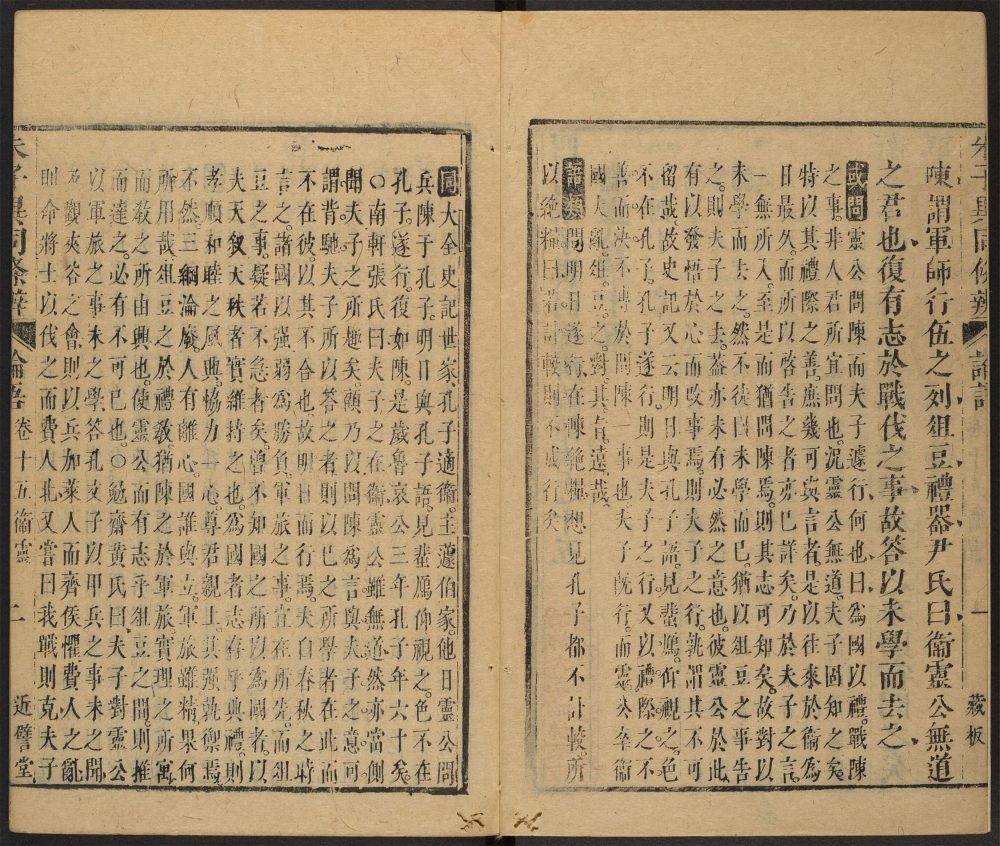 朱子異同條辨 論語 一 藏板
陳謂軍師行伍之列俎豆禮器尹氏曰衞靈公無道
之君也復有志於戰伐之事故答以未學而去之
或問靈公問陳而夫子遽行何也曰爲國以禮戰陳
之事非人君所宜問也況靈公無道夫子固知之矣
特以其禮際之善庶幾可與言者是以往來於衞爲
日最久而所以啓告之者亦已詳矣乃於夫子之言
一無所入至是而猶問陳焉則其志可知矣故對以
未學而去之然不徒曰未學而已猶以俎豆之事告
之則夫子之去蓋亦未有必然之意也彼靈公於此
有以發悟於心而改事焉則夫子之行孰謂其不可
留哉故史記又云明日與孔子語見蜚鴈仰視之色
不在孔子孔子遂行則是夫子之行又以禮際之不
善而決不專於問陳一事也夫子旣行而靈公卒衞
國大亂俎豆之對其旨遠哉
語類問明日遂行在陳絶糧想見孔子都不計較所
以絶糧曰若計較則不成行矣
同大全史記世家孔子適衞主蘧伯家他日靈公問
兵陳于孔子明日與孔子語見蜚鴈仰視之色不在
孔子遂行復如陳是歲魯哀公三年孔子年六十矣
○南軒張氏曰夫子之在衞靈公雖無道然亦當側
聞夫子之所趣矣顧乃以問陳爲言與夫子之意可
謂背馳夫子所以答之者則以已之所學者在此而
不在彼以其不合也故明日而行焉夫自春秋之時
言之諸國以强弱爲勝負軍旅之事宜在所先而俎
豆之事疑若不急者矣曾不知國之所以爲國者以
夫天叙天秩者實維持之也爲國者志存乎典禮則
孝順和睦之風興恊力一心尊君親上其强孰禦焉
不然三綱淪廢人有離心國誰與立軍旅雖精果何
所用哉俎豆之於禮敎猶陳之於軍旅實理之所寓
而敎之所由興也使靈公而有志乎俎豆之問則推
而達之必有不可已也○勉齋黃氏曰夫子對靈公
以軍旅之事未之學答孔文子以甲兵之事未之聞
及觀夾谷之會則以兵加萊人而齊侯懼費人之亂
則命將士以伐之而費人北又嘗曰我戰則克夫子
朱子異同條辨 論語卷十五衞靈 二 近譬堂